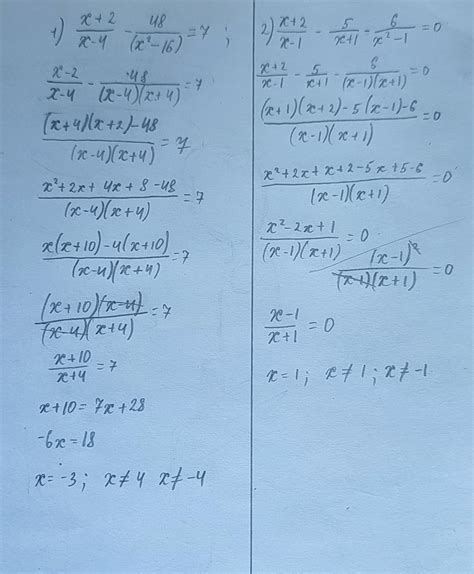 1) (x+2)/(x-4) - 48/(x²-16) = 7 ;
(x-2)/(x-4) - 48/((x-4)(x+4)) = 7
((x+4)(x+2)-48)/((x-4)(x+4)) = 7
(x²+2x+4x+8-48)/((x-4)(x+4)) = 7
(x(x+10)-4(x+10))/((x-4)(x+4)) = 7
((x+10)(x-4))/((x-4)(x+4)) = 7
(x+10)/(x+4) = 7
x+10=7x+28
-6x=18
x=-3; x≠4 x≠-4
2) (x+2)/(x-1) - 5/(x+1) - 6/(x²-1) = 0
(x+2)/(x-1) - 5/(x+1) - 6/((x-1)(x+1)) = 0
((x+1)(x+2)-5(x-1)-6)/((x-1)(x+1)) = 0
(x²+2x+x+2-5x+5-6)/((x-1)(x+1)) = 0
(x²-2x+1)/((x-1)(x+1)) = 0
(x-1)²/((x-1)(x+1)) = 0
(x-1)/(x+1) = 0
x=1; x≠1; x≠-1